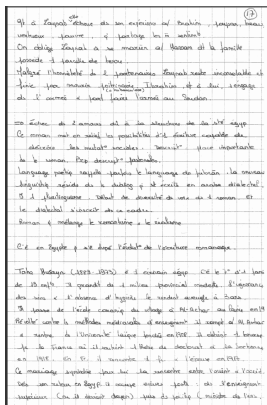 (17)
et à Zaynab elle échoue de son espérance à/ Ibrahim, joyeux, beau,
vertueux pauvre, & partage les m sentimts
On oblige Zaynab a se marier a/ Hassan et la famille
possède 1 famille de beau.
Malgré l'honnêteté de l partenaires Zaynab reste inconsolable et
finie par mourir
Ibrahim et a lui, s'engage
ds l' armée & part faire l'armée au Soudan
=> Échec de l'amour dû à la structure de la sté egypt
Ce roman met en relief la possibilité d'1 écriture capable de
décrire les mutat° sociales. Descript° prise importante
ds le roman. Bcp descript° pastorales.
Language poétiq rappelle parfois le language de Jubrân. La nouveau
linguistiq réside ds le dialog & st écrits en arabe dialectal
Il 1 plurilinguisme début de diversité de voix ds l roman et
le dialectal s'inscrit ds ce cadre.
Roman & mélange le romantisme & le réalisme
C'é en Egypte q s'é dvpé l'éclat de l'écriture romanesque
Taha Hussayn (1889-1973) é 1 écrivain égyp. Cé le 1er d'1 fami
de 13 enfts. Il grandit ds 1 milieu provincial modeste. L'ignorance
des siens & l'absence d'hygiène le rendent aveugle à 3 ans
Il passe de l'école coraniq du village à Al-Azhar au Caire en 19
Révolte contre l méthodes médiévales d'enseignemt il rompt a/ Al-Azhar
& rentre ds l'Université laïque fondée en 1908. Il obtient 1 bourse
pr la France où il obtient l titre de doctorat de la Sorbonne
en 1918. En Fr. il rencontre 1 f & l'épouse en 1917.
Ce mariage symbolise pour lui la rencontre entre l'orient & l'occid.
Dès son retour en Egypte il occupe divers posts ds l'enseignemt
supérieur (où il devient doyen) puis ds politiq (ministre de l'ens.